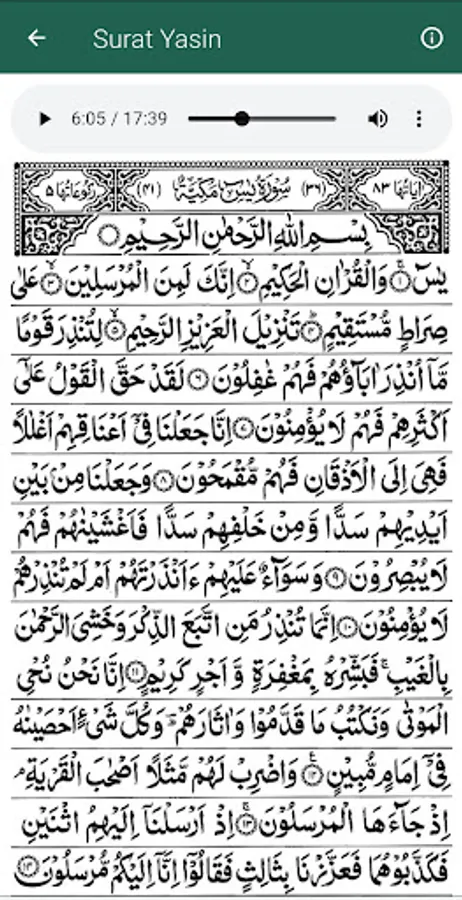 Surat Yasin
6:05 / 17:39
اٰیاتها ۸۳ (۳۶) سُوْرَةُ يٰسٓ مَكِّيَّةٌ (۴۱) رکوعاتها ۵
بِسْمِ اللهِ الرَّحْمٰنِ الرَّحِيْمِ
يٰسٓ ۚ۝۱ وَالْقُرْاٰنِ الْحَكِيْمِ ۙ۝۲ اِنَّكَ لَمِنَ الْمُرْسَلِيْنَ ۙ۝۳ عَلٰى
صِرَاطٍ مُّسْتَقِيْمٍ ؕ۝۴ تَنْزِيْلَ الْعَزِيْزِ الرَّحِيْمِ ۙ۝۵ لِتُنْذِرَ قَوْمًا
مَّاۤ اُنْذِرَ اٰبَآؤُهُمْ فَهُمْ غٰفِلُوْنَ ۝۶ لَقَدْ حَقَّ الْقَوْلُ عَلٰۤى
اَكْثَرِهِمْ فَهُمْ لَا يُؤْمِنُوْنَ ۝۷ اِنَّا جَعَلْنَا فِيْۤ اَعْنَاقِهِمْ اَغْلٰلًا
فَهِيَ اِلَى الْاَذْقَانِ فَهُمْ مُّقْمَحُوْنَ ۝۸ وَجَعَلْنَا مِنْۢ بَيْنِ
اَيْدِيْهِمْ سَدًّا وَّمِنْ خَلْفِهِمْ سَدًّا فَاَغْشَيْنٰهُمْ فَهُمْ
لَا يُبْصِرُوْنَ ۝۹ وَسَوَآءٌ عَلَيْهِمْ ءَاَنْذَرْتَهُمْ اَمْ لَمْ تُنْذِرْهُمْ
لَا يُؤْمِنُوْنَ ۝۱۰ اِنَّمَا تُنْذِرُ مَنِ اتَّبَعَ الذِّكْرَ وَخَشِيَ الرَّحْمٰنَ
بِالْغَيْبِ ۚ فَبَشِّرْهُ بِمَغْفِرَةٍ وَّاَجْرٍ كَرِيْمٍ ۝۱۱ اِنَّا نَحْنُ نُحْيِ
الْمَوْتٰى وَنَكْتُبُ مَا قَدَّمُوْا وَاٰثَارَهُمْ ؕ وَكُلَّ شَيْءٍ اَحْصَيْنٰهُ
فِيْۤ اِمَامٍ مُّبِيْنٍ ۠۝۱۲ وَاضْرِبْ لَهُمْ مَّثَلًا اَصْحٰبَ الْقَرْيَةِ ۘ
اِذْ جَآءَهَا الْمُرْسَلُوْنَ ۚ۝۱۳ اِذْ اَرْسَلْنَاۤ اِلَيْهِمُ اثْنَيْنِ
فَكَذَّبُوْهُمَا فَعَزَّزْنَا بِثَالِثٍ فَقَالُوْۤا اِنَّاۤ اِلَيْكُمْ مُّرْسَلُوْنَ ۝۱۴